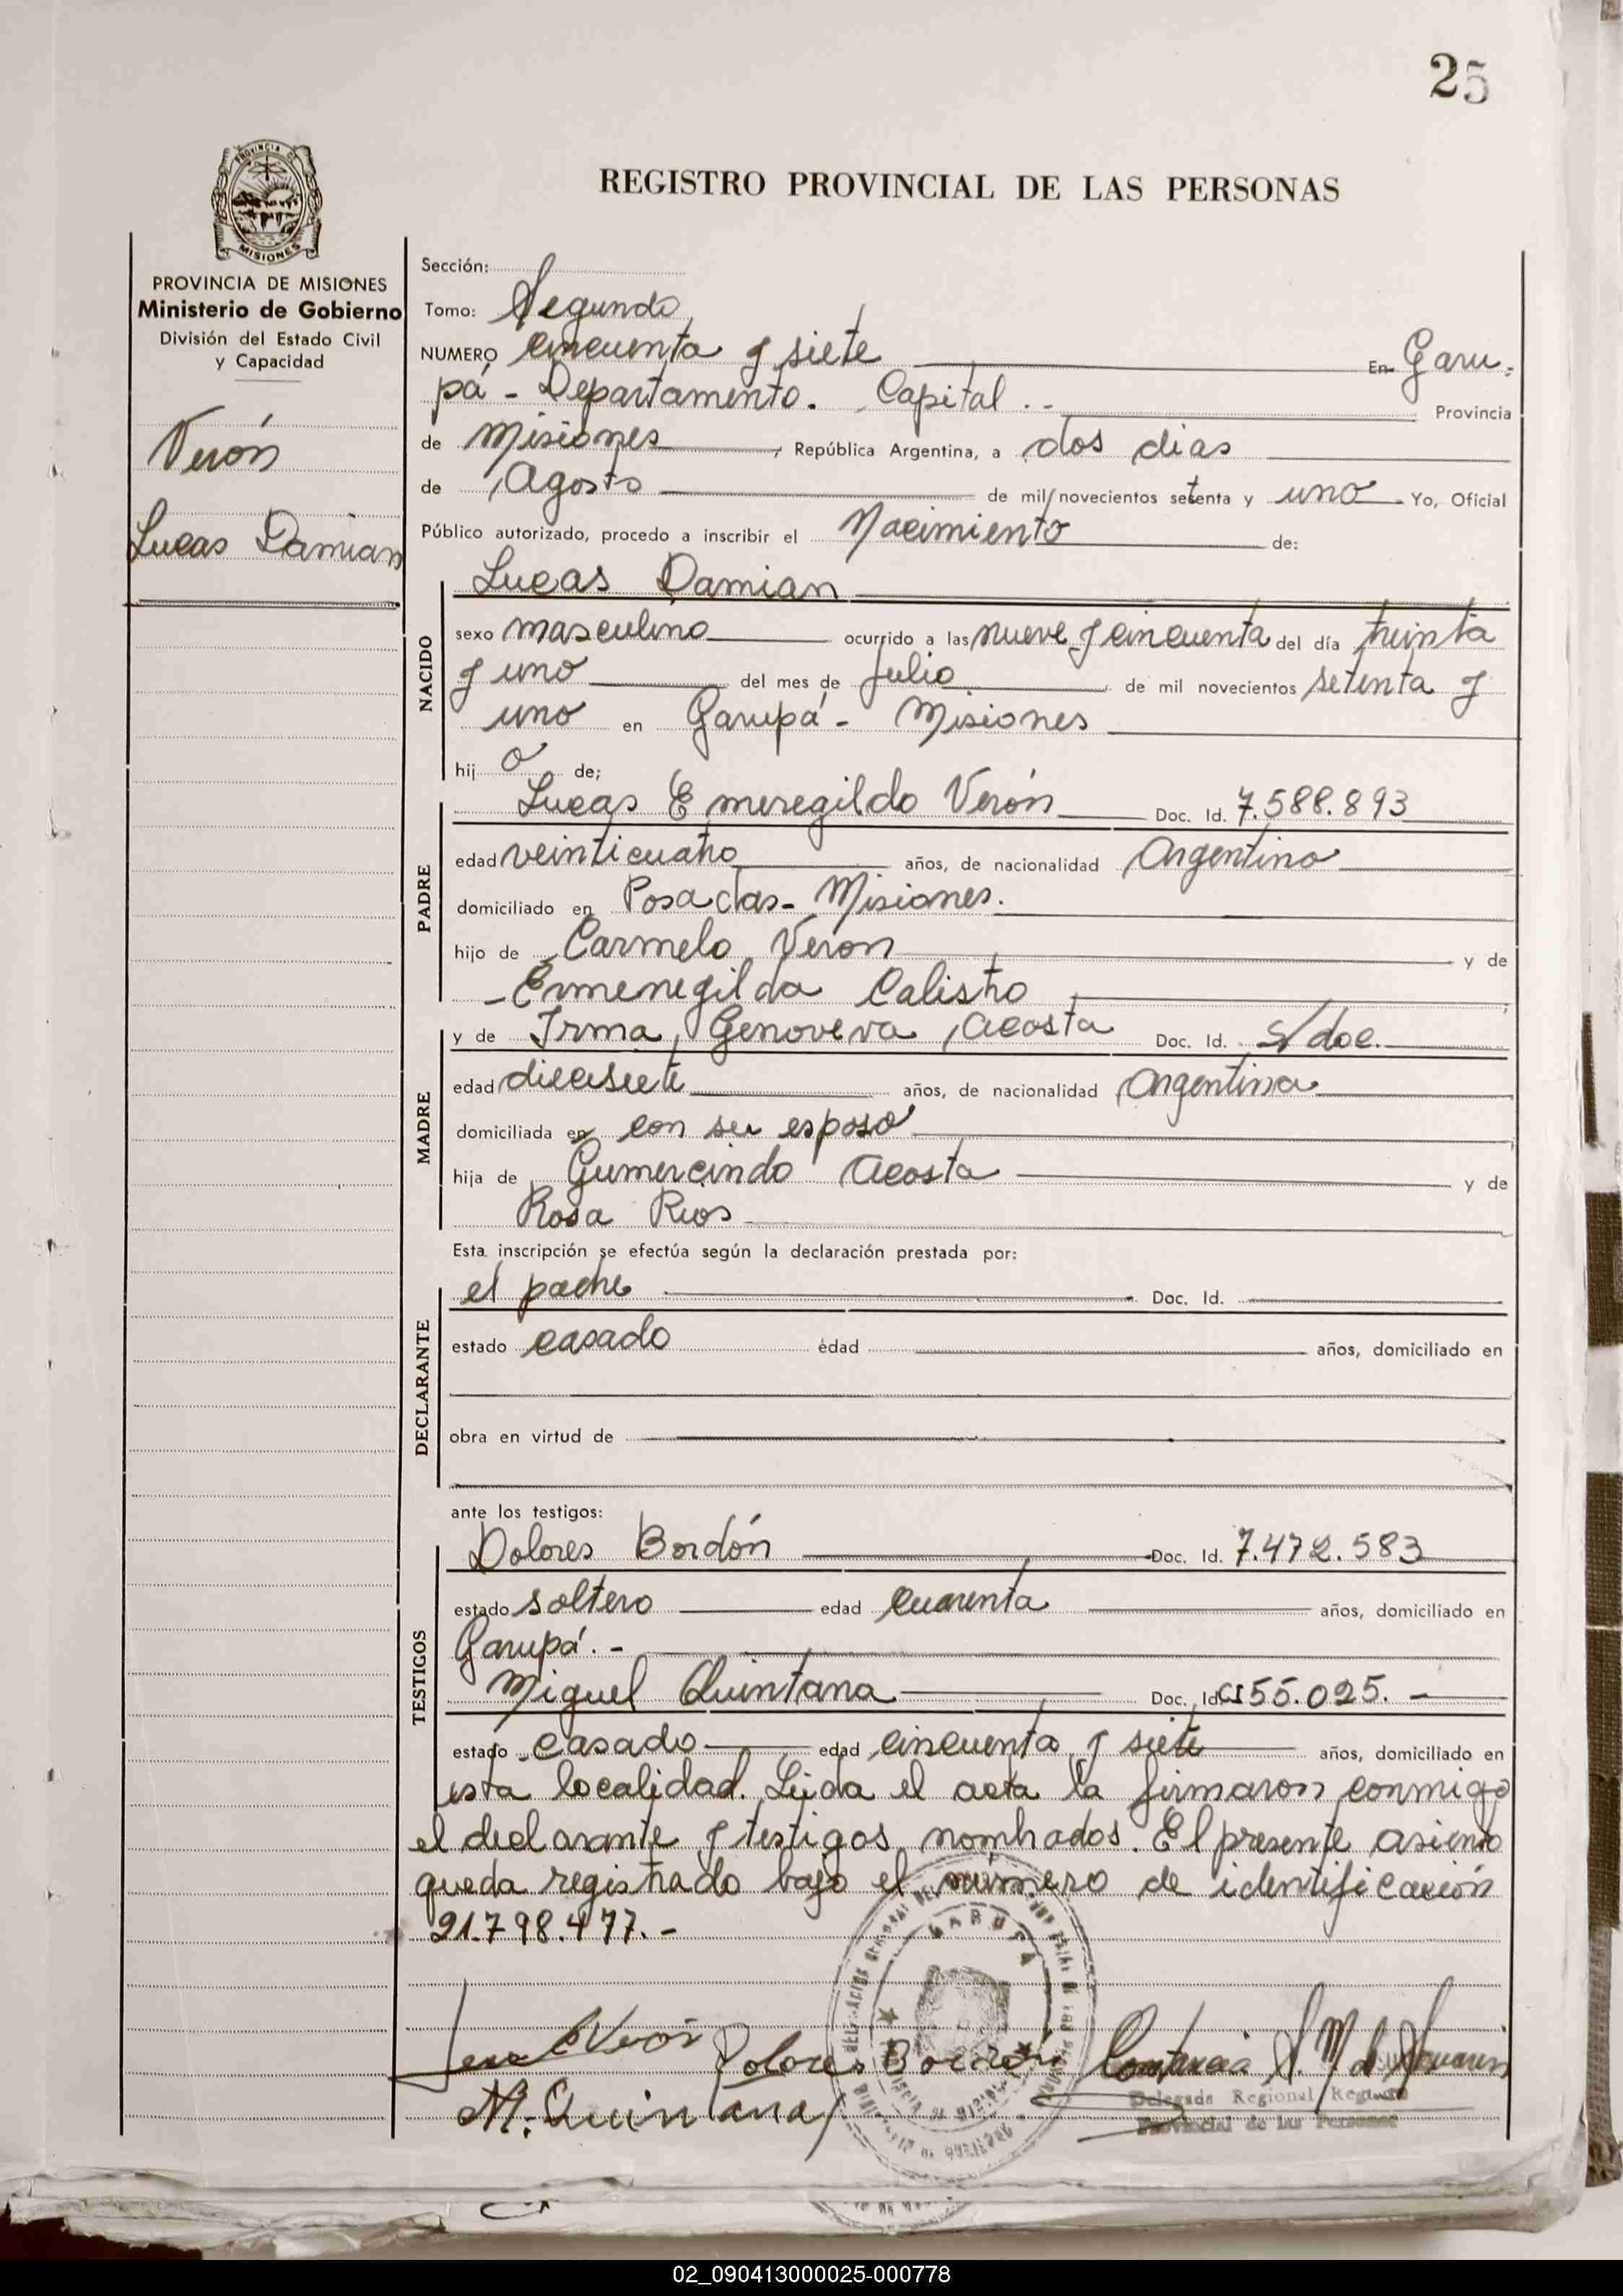 25
PROVINCIA DE
MISIONES
REGISTRO PROVINCIAL DE LAS PERSONAS
PROVINCIA DE MISIONES
Ministerio de Gobierno
División del Estado Civil
y Capacidad
Verón
Lucas Damian
Sección:
Tomo: Segundo
NUMERO cincuenta y siete En Garu-
pá - Departamento. Capital.- Provincia
de Misiones, República Argentina, a dos dias
de Agosto de mil novecientos setenta y uno Yo, Oficial
Público autorizado, procedo a inscribir el Nacimiento de:
Lucas Damian
NACIDO
sexo masculino ocurrido a las nueve y cincuenta del día treinta
y uno del mes de Julio de mil novecientos setenta y
uno en Garupá - Misiones
hij o de;
PADRE
Lucas Emeregildo Verón Doc. Id. 7.588.893
edad veinticuatro años, de nacionalidad Argentino
domiciliado en Posadas - Misiones.
hijo de Carmelo Veron y de
- Ermenegilda Calistro
MADRE
y de Irma Genoveva Acosta Doc. Id. s/doc.
edad diecisiete años, de nacionalidad Argentina
domiciliada en con su esposo
hija de Gumercindo Acosta y de
Rosa Rios
Esta inscripción se efectúa según la declaración prestada por:
DECLARANTE
el padre Doc. Id.
estado casado edad años, domiciliado en
obra en virtud de
ante los testigos:
TESTIGOS
Dolores Bordón Doc. Id. 7.472.583
estado soltero edad cuarenta años, domiciliado en
Garupá.-
Miguel Quintana Doc. Id. 55.025.-
estado casado edad cincuenta y siete años, domiciliado en
esta localidad. Leida el acta la firmaron conmigo
el declarante y testigos nombrados. El presente asiento
queda registrado bajo el número de identificación
21.798.477.-
GARUPA
Verón Dolores Bordón
M. Quintana
Delegada Regional Registro
Provincial de las Personas
02_090413000025-000778